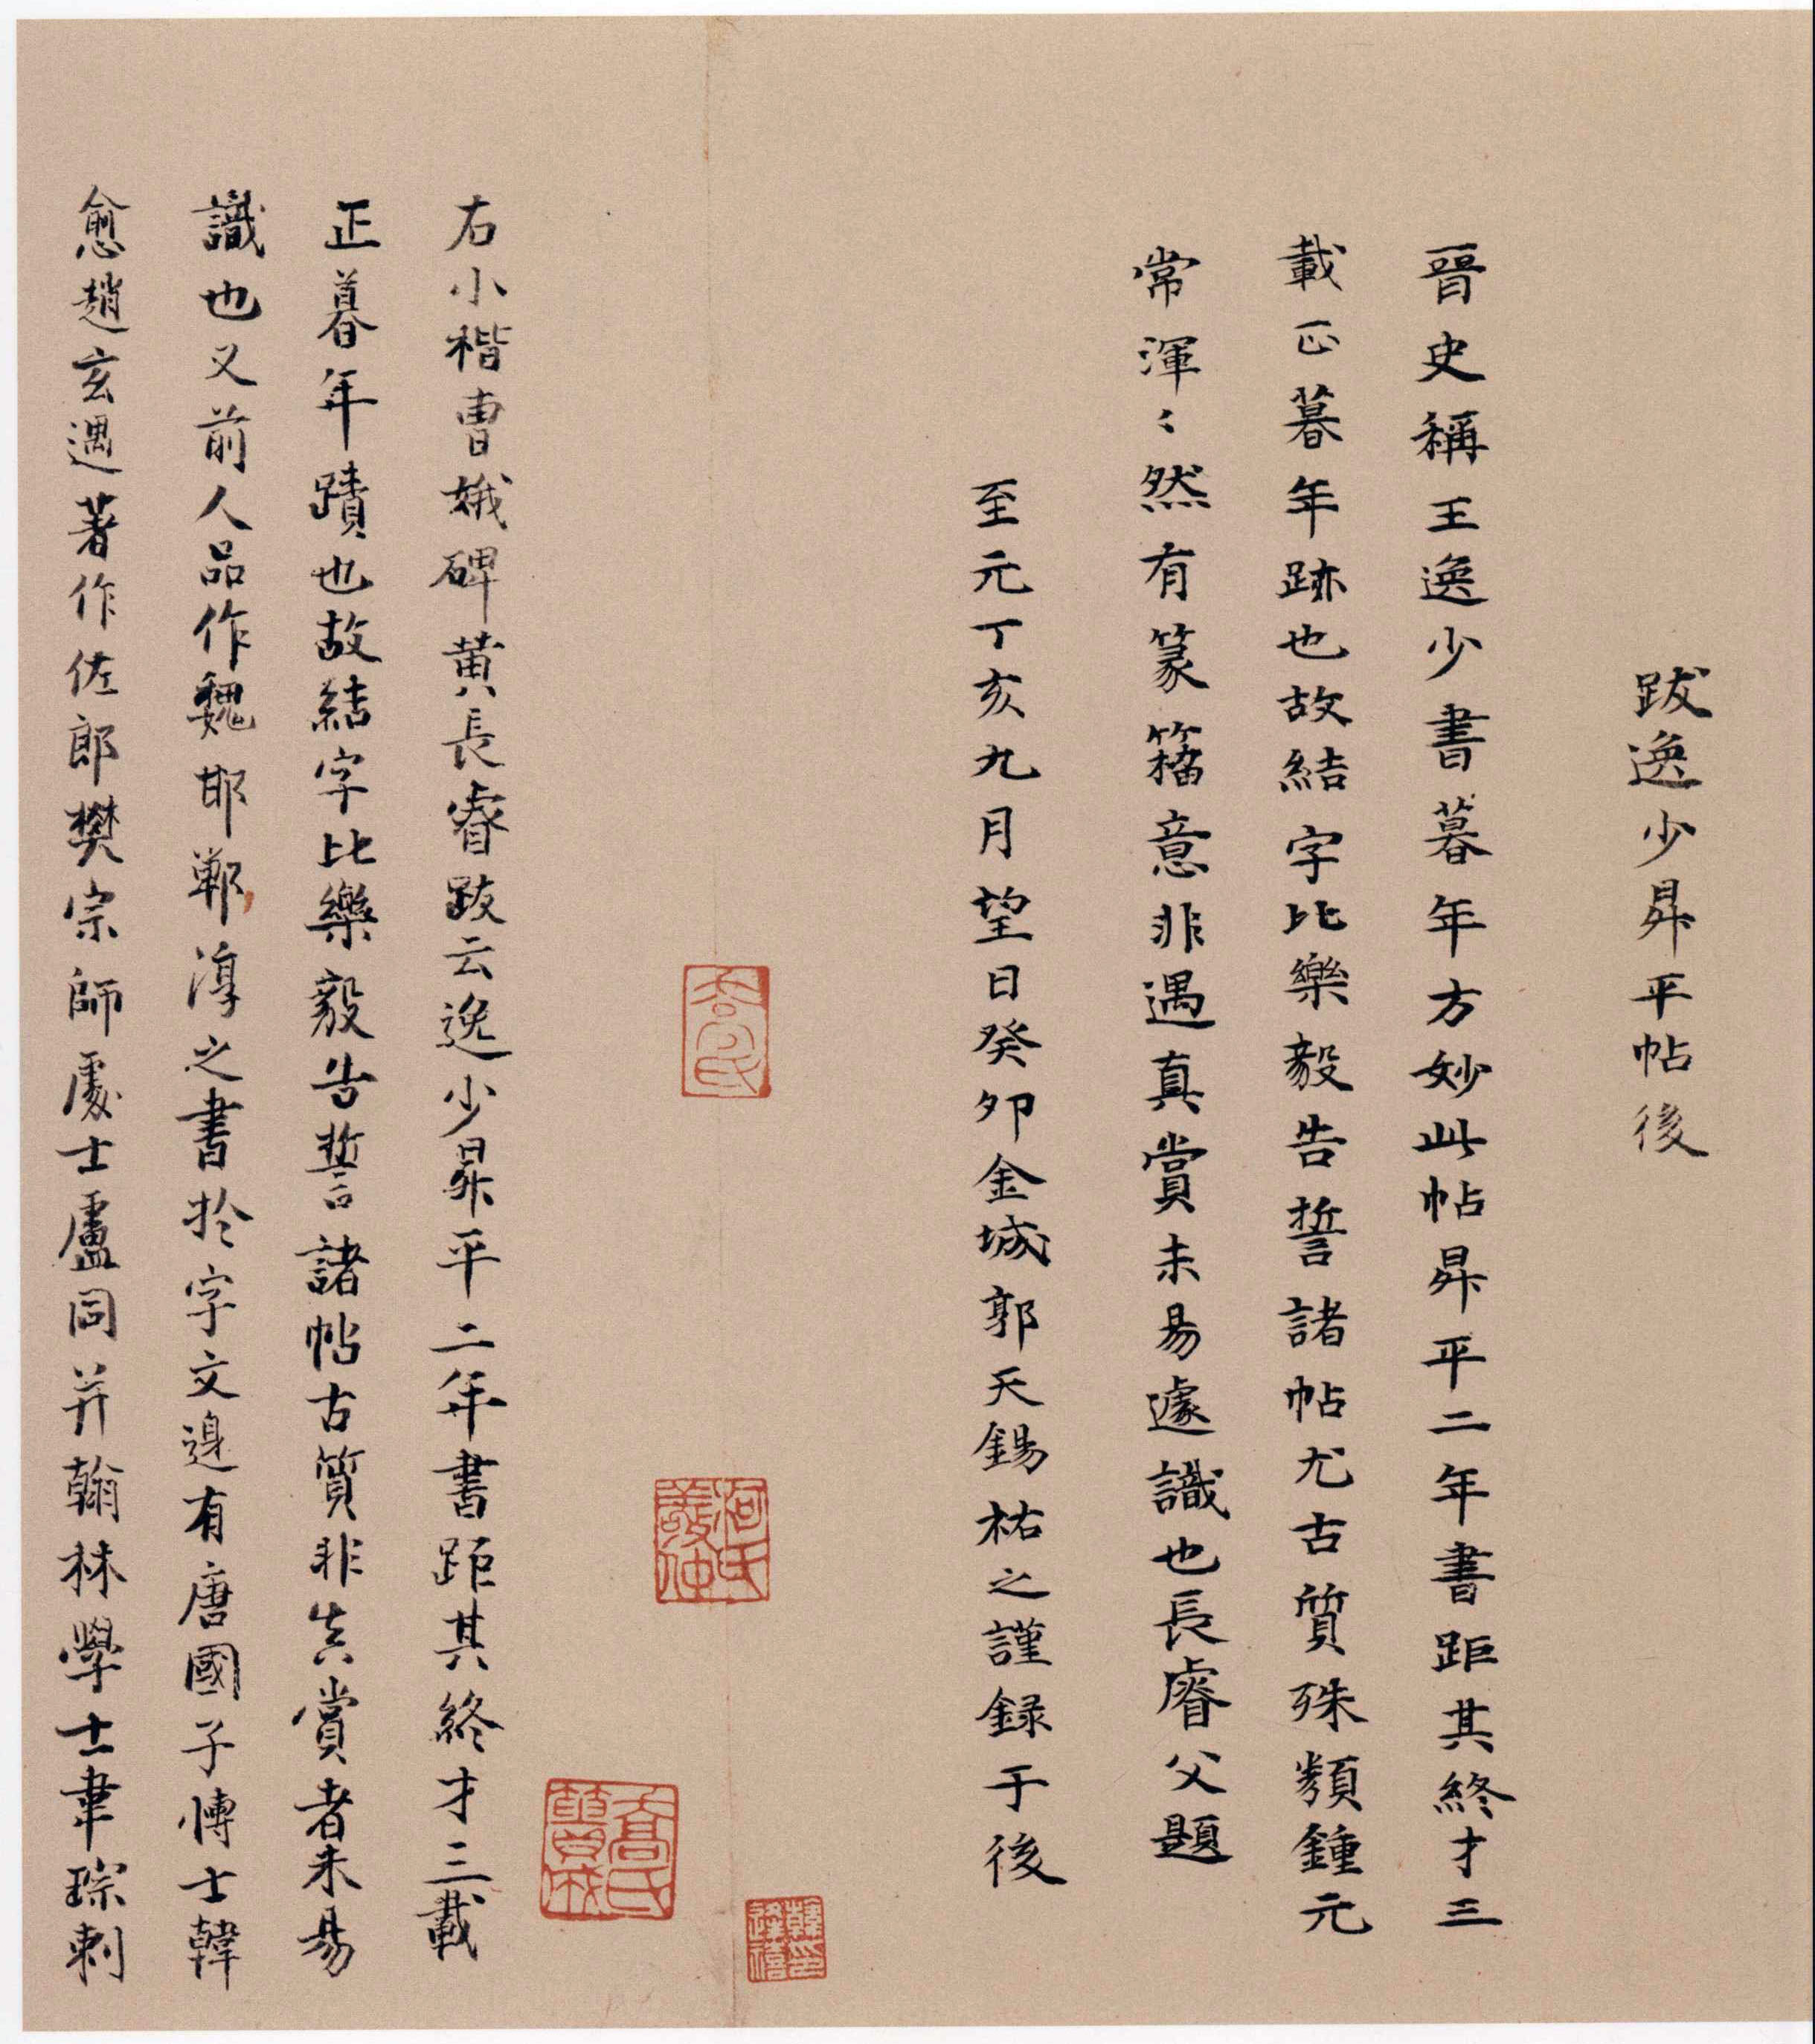 跋逸少昇平帖後
晉史稱王逸少書暮年方妙此帖昇平二年書距其終才三
載正暮年跡也故結字比樂毅告誓諸帖尤古質殊類鍾元
常渾〻然有篆籀意非遇真賞未易遽識也長睿父題
至元丁亥九月望日癸卯金城郭天錫祐之謹録于後
右小楷曹娥碑黄長睿跋云逸少昇平二年書距其終才三載
正暮年蹟也故結字比樂毅告誓諸帖古質非真賞者未易
識也又前人品作魏邯鄲淳之書於字文邊有唐國子博士韓
愈趙玄遇著作佐郎樊宗師處士盧同并翰林學士韋琮刺
喬氏
高氏